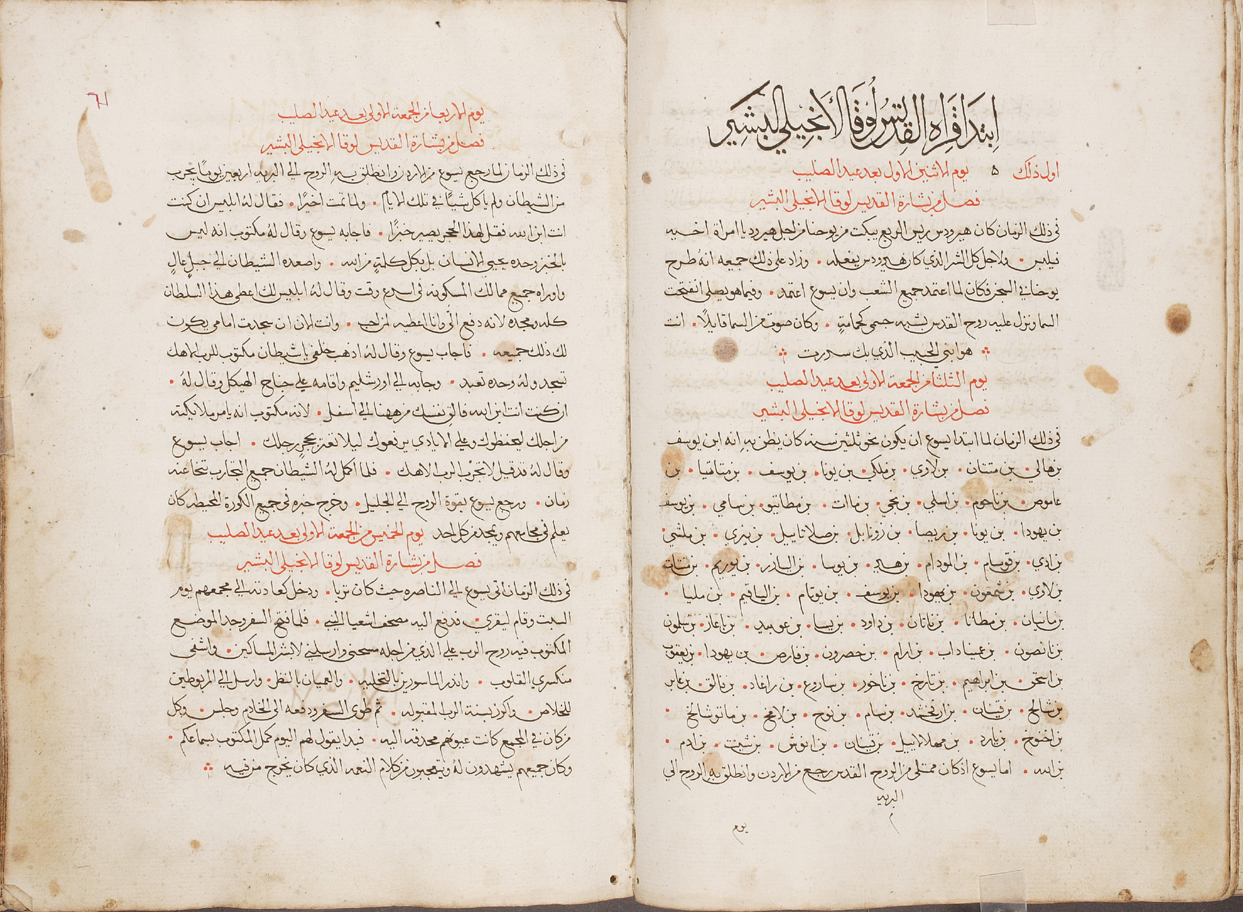 ابتدا قراه القديس لوقا الانجيلي البشير
اول ذلك ٥ يوم الاثنين الاول بعد عيد الصليب
فصل من بشارة القديس لوقا الانجيلي البشير
في ذلك الزمان كان هيرودس ريس الربع يبكت من يوحنا من اجل هيروديا امراة اخيه
فيلبس • ولاجل كل الشر الذي كان هيرودس يفعله • وزاد على ذلك جميعه انه طرح
يوحنا في السجن فكان لما اعتمد جميع الشعب وان يسوع اعتمد • وفيما هو يصلي انفتحت
السما ونزل عليه روح القدس بشبه جسمي كحمامة • وكان صوت من السما قايلا • انت
هو ابني الحبيب الذي بك سررت
يوم الثلثا من الجمعة الاولى بعد عيد الصليب
فصل من بشارة القديس لوقا الانجيلي البشير
في ذلك الزمان لما ابتدا يسوع ان يكون نحو ثلثين سنه كان يظن به انه ابن يوسف
بن هالي • بن متتان • بن لاوي • بن ملكي • بن يونا • بن يوسف • بن متاثيا • بن
عاموص • بن ناحوم • بن اسلي • بن نجي • بن ماات • بن مطاتيو • بن سامي • بن يوسف
بن يهودا • بن يونا • بن ريصا • بن زوربابل • بن صلاتاييل • بن نيري • بن ملشي
بن ادي • بن قوسام • بن المودام • بن هير • بن يوسا • بن اليازر • بن يوريم • بن متات
بن لاوي • بن شمعون • بن يهودا • بن يوسف • بن يونام • بن الياقيم • بن مليا
بن ماينان • بن مطاثا • بن ناتان • بن داود • بن يسا • بن عوبيد • بن باعاز • بن سلمون
بن نحصون • بن عميناداب • بن ارام • بن حصرون • بن فارص • بن يهودا • بن يعقوب
بن اسحق • بن ابراهيم • بن تارح • بن ناحور • بن ساروع • بن راغاد • بن فالق • بن عابر
بن شالح • بن قينان • بن ارفخشد • بن سام • بن نوح • بن لامخ • بن ماتوشالح •
بن اخنوخ • بن يارد • بن مهلالاييل • بن قينان • بن انوش • بن شيت • بن ادم •
بن الله • اما يسوع اذ كان ممتلي من الروح القدس رجع من الاردن وانطلق به الروح الى
البريه
يوم
٦١
يوم الاربعا من الجمعة الاولى بعد عيد الصليب
فصل من بشارة القديس لوقا الانجيلي البشير
في ذلك الزمان لما رجع يسوع من الاردن وانطلق به الروح الى البريه اربعين يوما يجرب
من الشيطان ولم ياكل شيا في تلك الايام • ولما تمت اخيرا • فقال له ابليس ان كنت
انت ابن الله فقل لهذا الحجر يصير خبزا • فاجابه يسوع وقال له مكتوب انه ليس
بالخبز وحده يحيى الانسان بل بكل كلمة من الله • واصعده الشيطان الى جبل عال
واوراه جميع ممالك المسكونه في اسرع وقت وقال له ابليس لك اعطي هذا السلطان
كله ومجده لانه دفع الي وانا اعطيه لمن احب • وانت الان ان سجدت امامي يكون
لك ذلك جميعه • فاجاب يسوع وقال له اذهب خلفي يا شيطان مكتوب للرب الاهك
تسجد وله وحده تعبد • وجا به الى اورشليم واقامه على جناح الهيكل وقال له •
ان كنت انت ابن الله فالق نفسك من ههنا الى اسفل • لانه مكتوب انه يامر ملايكته
من اجلك ليحفظوك وعلى الايادي يرفعوك ليلا تعثر بحجر رجلك • اجاب يسوع
وقال له قد قيل لا تجرب الرب الاهك • فلما اكمل له الشيطان جميع التجارب تنحا عنه
زمان • ورجع يسوع بقوة الروح الى الجليل • وخرج خبره في جميع الكورة المحيطه كان
يعلم في مجامعهم ويمجد من كل احد يوم الخميس من الجمعة الاولى بعد عيد الصليب
فصل من بشارة القديس لوقا الانجيلي البشير
في ذلك الزمان اتى يسوع الى الناصره حيث كان تربا • ودخل كعادته الى مجمعهم يوم
السبت وقام ليقري • فدفع اليه مصحف اشعيا النبي • فلما فتح السفر وجد الموضع
المكتوب فيه روح الرب علي الذي من اجله مسحني وارسلني لابشر المساكين • واشفي
منكسري القلوب • وانذر الماسورين بالتخليه • والعميان بالنظر • وارسل الى المربوطين
للخلاص • واكرز بسنة الرب المقبوله • ثم طوى السفر ودفعه الى الخادم وجلس • وكل
من كان في المجمع كانت عيونهم محدقه اليه • فبدا يقول لهم اليوم كمل المكتوب بسماعكم •
وكان جميعهم يشهدون له ويتعجبون من كلام النعمه الذي كان يخرج من فيه